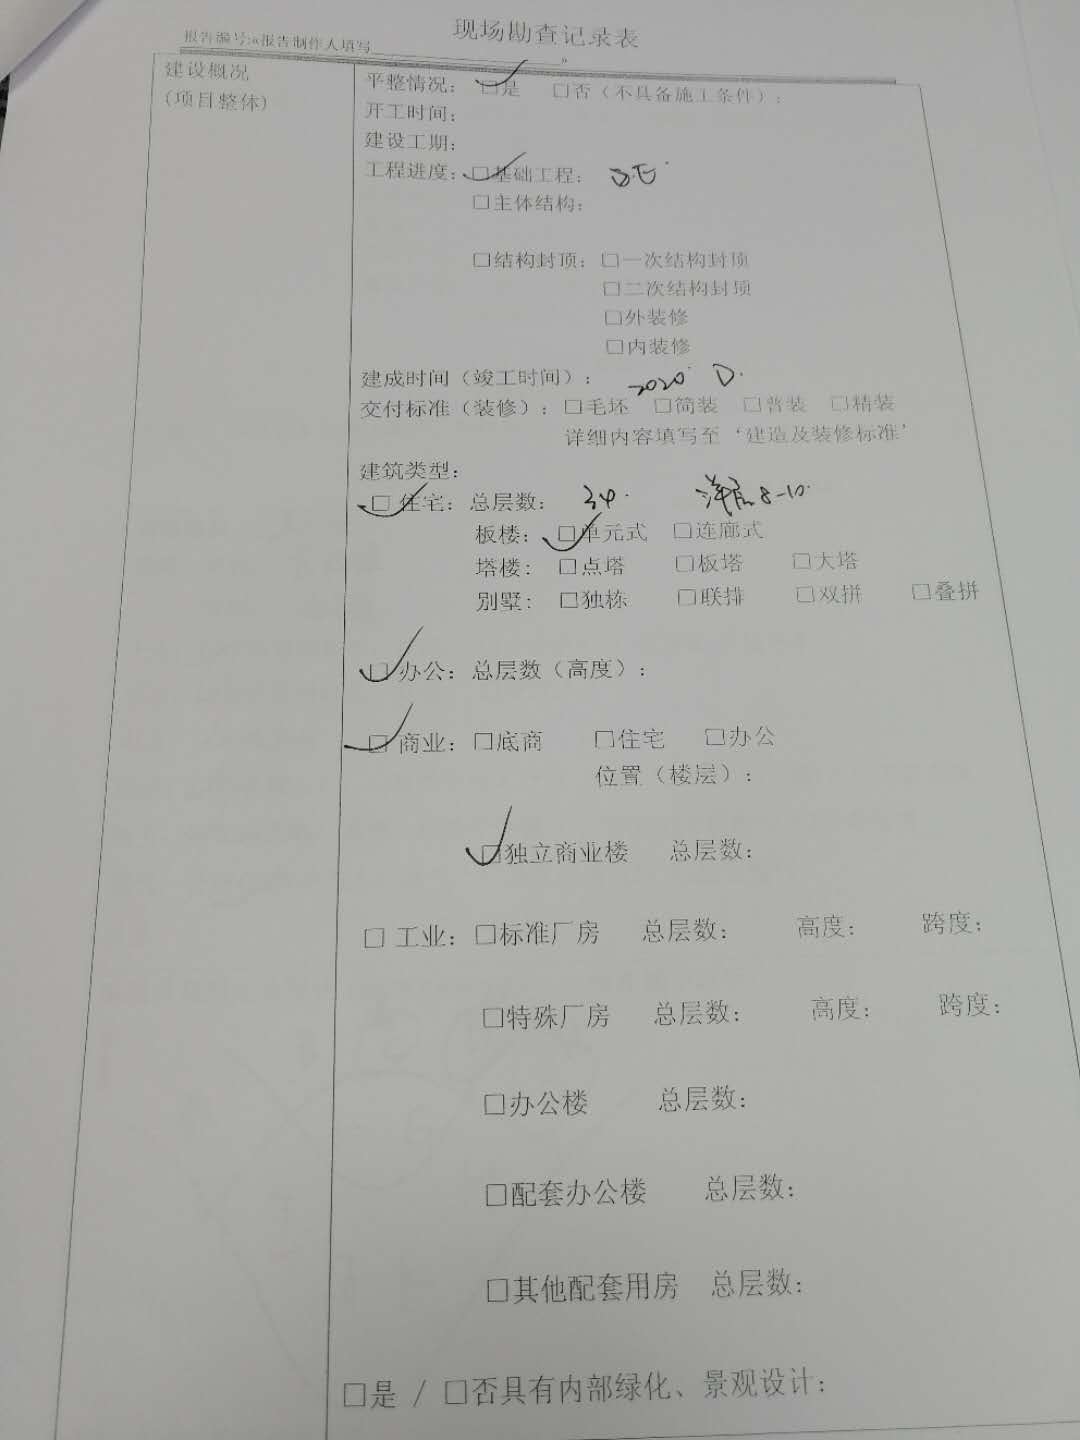 现场勘查记录表
报告编号:«报告制作人填写 »
建设概况
(项目整体)
平整情况: ☑是 □否(不具备施工条件):
开工时间:
建设工期:
工程进度: ☑基础工程:
□主体结构:
□结构封顶: □一次结构封顶
□二次结构封顶
□外装修
□内装修
建成时间(竣工时间): 2020
交付标准(装修): □毛坯 □简装 □普装 □精装
详细内容填写至‘建造及装修标准’
建筑类型:
☑住宅: 总层数: 34. 洋房8-10.
板楼: ☑单元式 □连廊式
塔楼: □点塔 □板塔 □大塔
别墅: □独栋 □联排 □双拼 □叠拼
☑办公: 总层数(高度):
☑商业: □底商 □住宅 □办公
位置(楼层):
☑独立商业楼 总层数:
□ 工业: □标准厂房 总层数: 高度: 跨度:
□特殊厂房 总层数: 高度: 跨度:
□办公楼 总层数:
□配套办公楼 总层数:
□其他配套用房 总层数:
□是 / □否具有内部绿化、景观设计: